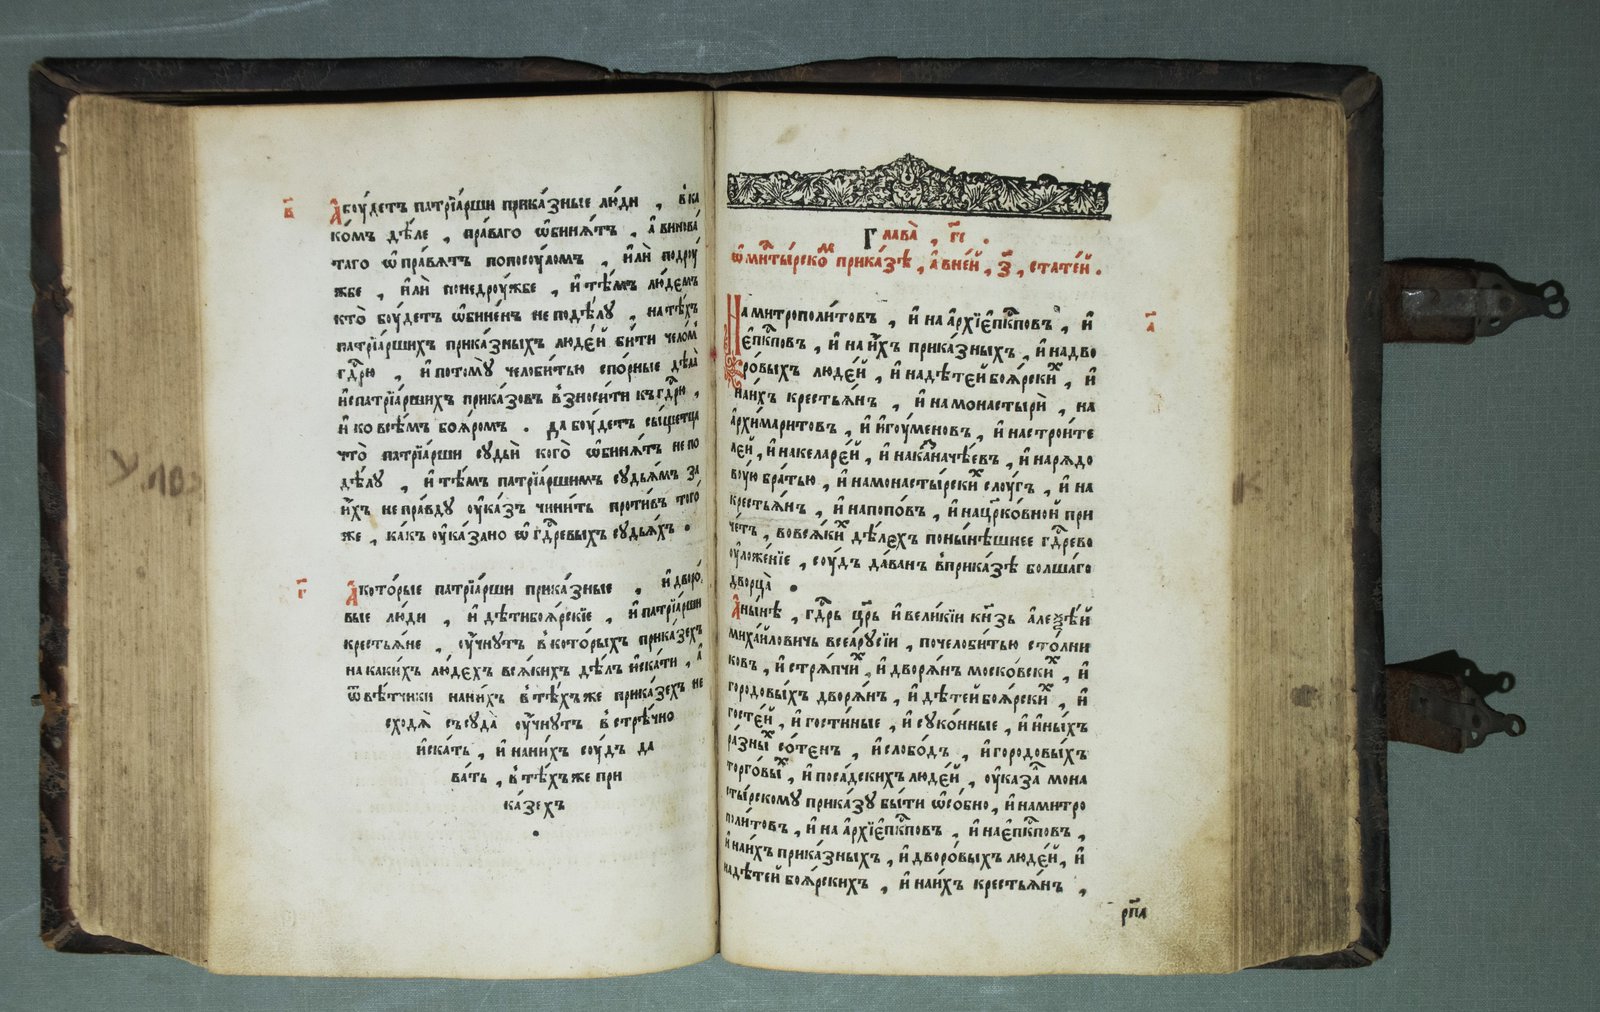 в҃
А боу́детъ патрїа́рши прика́зные лю́ди , в҆ ка
ко́мъ дѣ́ле , пра́ваго ѡ҆бинѧ́тъ , а҆ винова́
таго ѡ҆пра́вѧтъ попосоу́ломъ , и҆лѝ подроу́
жбе , и҆лѝ понедроу́жбе , и҆ тѣ́мъ лю́демъ
кто̀ боу́детъ ѡ҆бине́нъ не подѣ́лу , на тѣ́хъ
патрїа́ршихъ прика́зныхъ люде́й би́ти чело́мъ
гдⷭ҇рю , и҆ потомꙋ̀ челоби́тью спо́рные дѣла̀
и҆с патрїа́ршихъ прика́зовъ в҆зноси́ти къ гдⷭ҇рю ,
и҆ ко всѣ́мъ боѧ́ромъ . да боу́детъ сы́щетца
что̀ патрїа́рши судьѝ кого̀ ѡ҆бинѧ́тъ не по
дѣ́лу , и҆ тѣ́мъ патрїа́ршимъ судьѧ́мъ за
и҆́хъ непра́вду оу҆ка́зъ чини́ть про́тивъ того́
же , ка́къ оу҆ка́зано ѡ҆ гдⷭ҇ревыхъ судьѧ́хъ .
г҃
А кото́рые патрїа́рши прика́зные , и҆ дворо́
вые лю́ди , и҆ дѣ́ти боѧ́рскїе , и҆ патрїа́рши
крестьѧ́не , оу҆чну́тъ в҆ кото́рыхъ прика́зехъ
на каки́хъ лю́дехъ всѧ́кихъ дѣ́лъ и҆ска́ти , а҆
ѿвѣ́тчики на ни́хъ в҆ тѣ́хъ же прика́зехъ не
сходѧ̀ съ суда̀ оу҆чну́тъ в҆стрѣ́чно
и҆ска́ть , и҆ на ни́хъ соу́дъ да
ва́ть , в҆ тѣ́хъ же при
ка́зехъ
.
Глава̀ , гі҃ .
Ѡ҆ мⷩ҇ты́рскоⷨ прика́зѣ , а҆ в не́й , з҃ , стате́й .
а҃
На митрополи́товъ , и҆ на а҆рхїе҆пкⷭ҇повъ , и҆
е҆пкⷭ҇повъ , и҆ на и҆́хъ прика́зныхъ , и҆ на дво
ро́выхъ люде́й , и҆ на дѣте́й боѧ́рскиⷯ , и҆
на и́хъ крестьѧ́нъ , и҆ на монастырѝ , на
а҆рхи́маритовъ , и҆ и҆гоу́меновъ , и҆ на строи́те
ле́й , и҆ на келаре́й , и҆ на казначѣ́евъ , и҆ на рѧдо
воу́ю бра́тью , и҆ на монасты́рскиⷯ слоу́гъ , и҆ на
крестьѧ́нъ , и҆ на попо́въ , и҆ на црⷪ҇ко́вной при
че́тъ , во всѧ́киⷯ дѣ́лехъ по ны́нѣшнее гдⷭ҇рево
оу҆ложе́нїе , соу́дъ да́ванъ в҆ прика́зѣ болша́го
дворца̀ .
А ны́нѣ , гдⷭ҇рь цр҃ь и҆ вели́кїи кнѧ҃зь а҆леѯѣ́й
миха́йловичь всеа̀ русі́и , по челоби́тью сто́лни
ковъ , и҆ стрѧ́пчиⷯ , и҆ дворѧ́нъ моско́вскиⷯ , и҆
городовы́хъ дворѧ́нъ , и҆ дѣте́й боѧ́рскиⷯ , и҆
госте́й , и҆ гости́ные , и҆ суко́нные , и҆ и҆ны́хъ
ра́зныⷯ со́тенъ , и҆ слобо́дъ , и҆ городовы́хъ
торго́выⷯ , и҆ поса́дскихъ люде́й , оу҆каза́лъ мона
сты́рскому прика́зу бы́ти ѡ҆со́бно , и҆ на митро
поли́товъ , и҆ на а҆рхїе҆пкⷭ҇повъ , и҆ на е҆пкⷭ҇повъ ,
и҆ на и́хъ прика́зныхъ , и҆ дворо́выхъ люде́й , и҆
на дѣте́й боѧ́рскихъ , и҆ на и́хъ крестьѧ́нъ ,
рп҃а